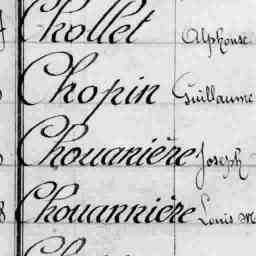 Chollet Alphonse
Chopin Guillaume
Chouanière Joseph
Chouannière Louis M